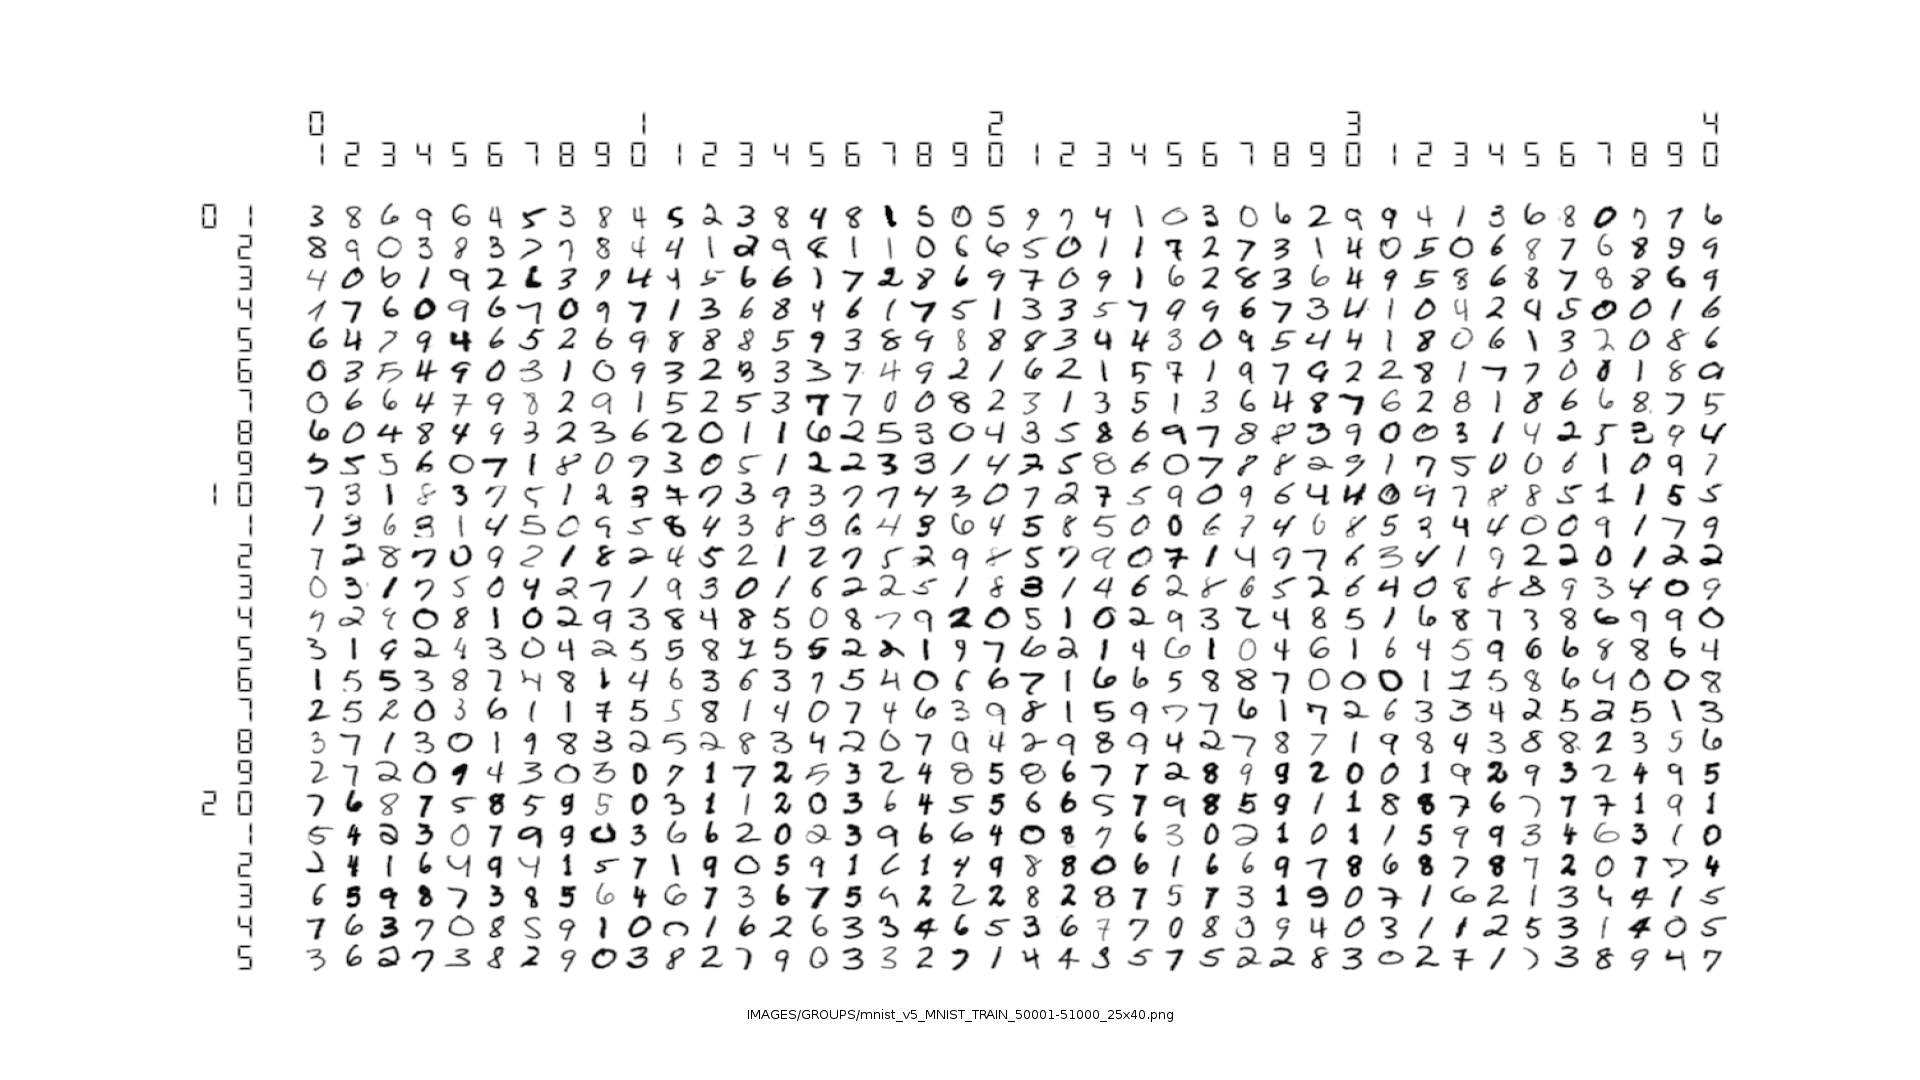 0 1 2 3 4
1 2 3 4 5 6 7 8 9 0 1 2 3 4 5 6 7 8 9 0 1 2 3 4 5 6 7 8 9 0 1 2 3 4 5 6 7 8 9 0
0 1 3 8 6 9 6 4 5 3 8 4 5 2 3 8 4 8 1 5 0 5 9 7 4 1 0 3 0 6 2 9 9 4 1 3 6 8 0 7 7 6
2 8 9 0 3 8 3 7 7 8 4 4 1 2 9 8 1 1 0 6 6 5 0 1 1 7 2 7 3 1 4 0 5 0 6 8 7 6 8 9 9
3 4 0 6 1 9 2 6 3 9 4 4 5 6 6 1 7 2 8 6 9 7 0 9 1 6 2 8 3 6 4 9 5 8 6 8 7 8 8 6 9
4 1 7 6 0 9 6 7 0 9 7 1 3 6 8 4 6 1 7 5 1 3 3 5 7 9 9 6 7 3 4 1 0 4 2 4 5 0 0 1 6
5 6 4 7 9 4 6 5 2 6 9 8 8 8 5 9 3 8 9 8 8 8 3 4 4 3 0 9 5 4 4 1 8 0 6 1 3 2 0 8 6
6 0 3 5 4 9 0 3 1 0 9 3 2 3 3 3 7 4 9 2 1 6 2 1 5 7 1 9 7 9 2 2 8 1 7 7 0 8 1 8 9
7 0 6 6 4 7 9 8 2 9 1 5 2 5 3 7 7 0 0 8 2 3 1 3 5 1 3 6 4 8 7 6 2 8 1 8 6 6 8 7 5
8 6 0 4 8 4 9 3 2 3 6 2 0 1 1 6 2 5 3 0 4 3 5 8 6 9 7 8 8 3 9 0 0 3 1 4 2 5 3 9 4
9 5 5 5 6 0 7 1 8 0 9 3 0 5 1 2 2 3 3 1 4 2 5 8 6 0 7 8 8 2 9 1 7 5 0 0 6 1 0 9 7
1 0 7 3 1 8 3 7 5 1 2 3 7 7 3 9 3 7 7 4 3 0 7 2 7 5 9 0 9 6 4 4 0 9 7 8 8 5 1 1 5 5
1 1 3 6 3 1 4 5 0 9 5 8 4 3 8 9 6 4 9 6 4 5 8 5 0 0 6 7 4 6 8 5 3 4 4 0 0 9 1 7 9
2 7 2 8 7 0 9 2 1 8 2 4 5 2 1 2 7 5 2 9 8 5 7 9 0 7 1 4 9 7 6 3 4 1 9 2 2 0 1 2 2
3 0 3 1 7 5 0 4 2 7 1 9 3 0 1 6 2 2 5 1 8 3 1 4 6 2 8 6 5 2 6 4 0 8 8 8 9 3 4 0 9
4 7 2 9 0 8 1 0 2 9 3 8 4 8 5 0 8 7 9 2 0 5 1 0 2 9 3 2 4 8 5 1 6 8 7 3 8 6 9 9 0
5 3 1 9 2 4 3 0 4 2 5 5 8 1 5 5 2 2 1 9 7 6 2 1 4 6 1 0 4 6 1 6 4 5 9 6 6 8 8 6 4
6 1 5 5 3 8 7 4 8 1 4 6 3 6 3 7 5 4 0 6 6 7 1 6 6 5 8 8 7 0 0 0 1 1 5 8 6 4 0 0 8
7 2 5 2 0 3 6 1 1 7 5 5 8 1 4 0 7 4 6 3 9 8 1 5 9 7 7 6 1 7 2 6 3 3 4 2 5 2 5 1 3
8 3 7 1 3 0 1 9 8 3 2 5 2 8 3 4 2 0 7 9 4 2 9 8 9 4 2 7 8 7 1 9 8 4 3 8 8 2 3 5 6
9 2 7 2 0 9 4 3 0 3 0 7 1 7 2 5 3 2 4 8 5 8 6 7 7 2 8 9 9 2 0 0 1 9 2 9 3 2 4 9 5
2 0 7 6 8 7 5 8 5 9 5 0 3 1 1 2 0 3 6 4 5 5 6 6 5 7 9 8 5 9 1 1 8 8 7 6 7 7 7 1 9 1
1 5 4 2 3 0 7 9 9 0 3 6 6 2 0 2 3 9 6 6 4 0 8 7 6 3 0 2 1 0 1 1 5 9 9 3 4 6 3 1 0
2 2 4 1 6 4 9 4 1 5 7 1 9 0 5 9 1 6 1 4 9 8 8 0 6 1 6 6 9 7 8 6 8 7 8 7 2 0 7 7 4
3 6 5 9 8 7 3 8 5 6 4 6 7 3 6 7 5 9 2 2 2 8 2 8 7 5 7 3 1 9 0 7 1 6 2 1 3 4 4 1 5
4 7 6 3 7 0 8 5 9 1 0 0 1 6 2 6 3 3 4 6 5 3 6 7 7 0 8 3 9 4 0 3 1 1 2 5 3 1 4 0 5
5 3 6 2 7 3 8 2 9 0 3 8 2 7 9 0 3 3 2 7 1 4 4 3 5 7 5 2 2 8 3 0 2 7 1 7 3 8 9 4 7
IMAGES/GROUPS/mnist_v5_MNIST_TRAIN_50001-51000_25x40.png